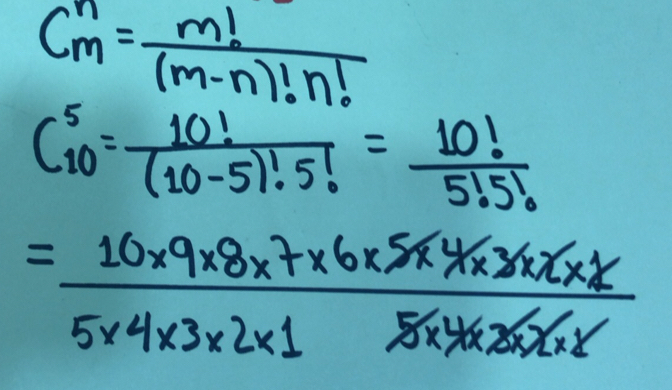 C^n_m = m! / (m-n)! n!
C^5_10 = 10! / (10-5)! 5! = 10! / 5! 5!
= 10×9×8×7×6×5×4×3×2×1 / 5×4×3×2×1 5×4×3×2×1